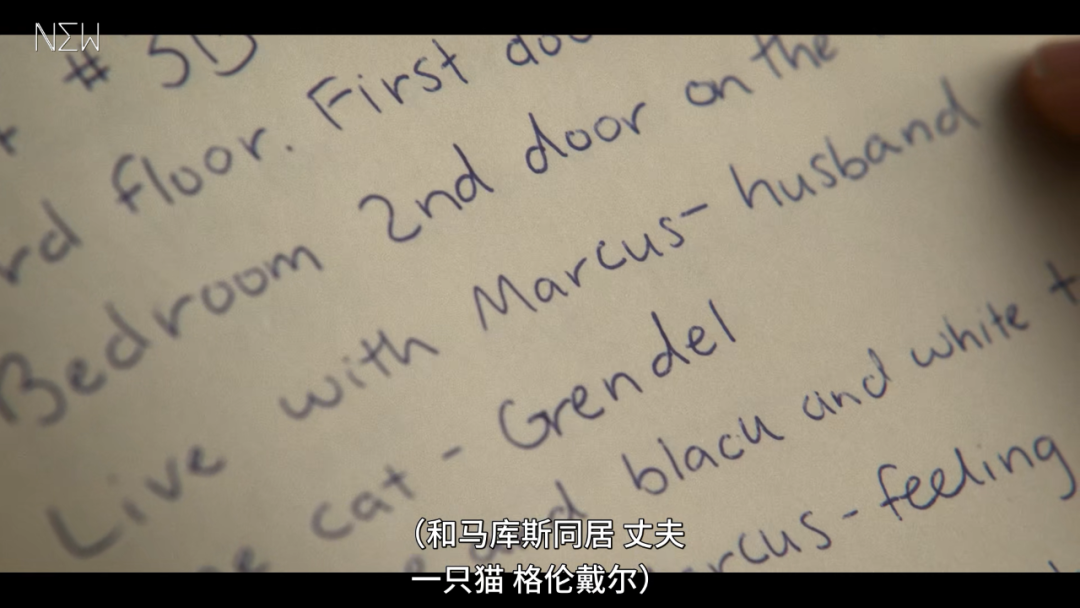 NEW
# 3D
rd floor. First door
Bedroom 2nd door on the
Live with Marcus- husband
cat - Grendel
and black and white
rcus - feeling
（和马库斯同居 丈夫
一只猫 格伦戴尔）